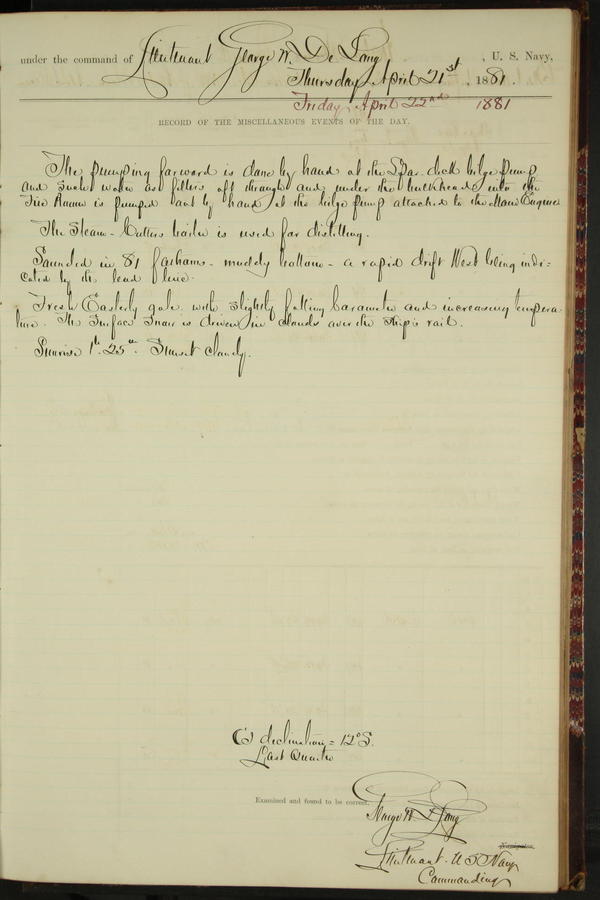 under the command of Lieutenant George W. De Long, U. S. Navy,
Thursday, April 21st, 1881.
Friday, April 22nd 1881
RECORD OF THE MISCELLANEOUS EVENTS OF THE DAY.
The pumping forward is done by hand at the Spar-deck bilge pump
and such water as filters aft through and under the bulkhead into the
Fire Room is pumped out by hand at the bilge pump attached to the Main Engine
The Steam-Cutters boiler is used for distilling.
Sounded in 81 fathoms - muddy bottom - a rapid drift West being indi=
cated by the lead line.
Fresh Easterly gale with slightly falling barometer and increasing tempera
ture. The Surface Snow is driven in clouds over the ship's rail.
Sunrise 1h. 25m. Sunset cloudy.
declination = 12° S.
Last Quarter
Examined and found to be correct.
George W. De Long
Navigator.
Lieutenant. U S Navy
Commanding